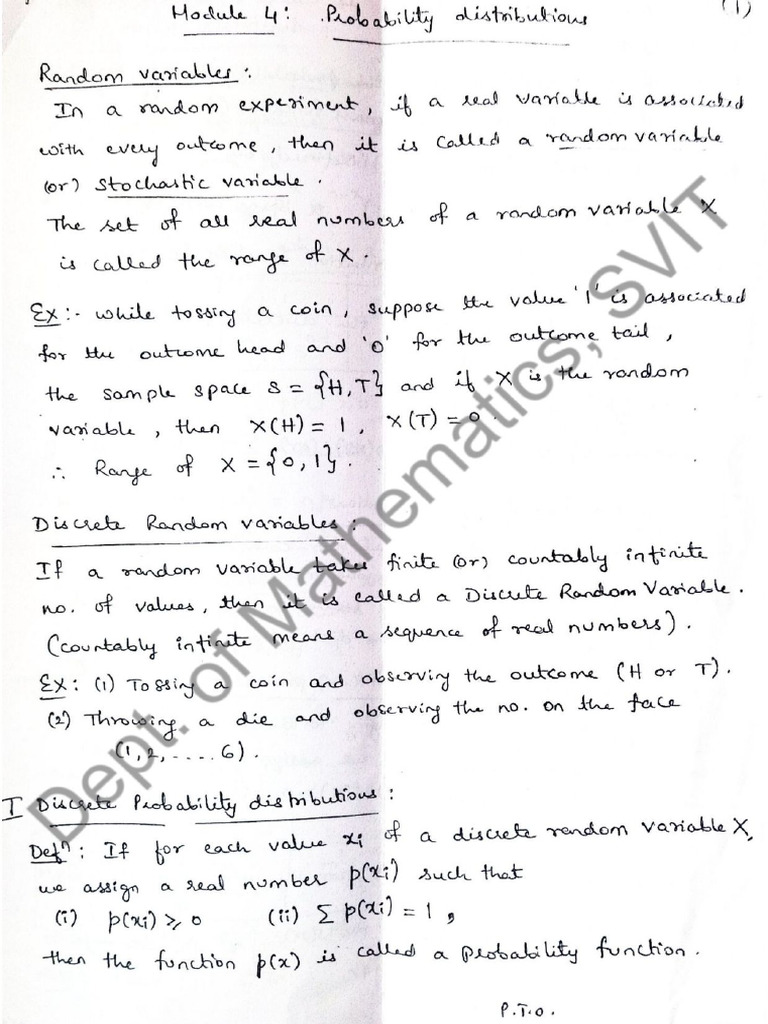 Module 4: Probability distributions (1)
Random variables:
In a random experiment, if a real variable is associated
with every outcome, then it is called a random variable
(or) stochastic variable.
The set of all real numbers of a random variable X
is called the range of X.
Ex:- while tossing a coin, suppose the value '1' is associated
for the outcome head and '0' for the outcome tail,
the sample space S = {H,T} and if X is the random
variable, then X(H) = 1, X(T) = 0.
∴ Range of X = {0,1}.
Discrete Random variables:
If a random variable takes finite (or) countably infinite
no. of values, then it is called a Discrete Random Variable.
(countably infinite means a sequence of real numbers).
Ex: (1) Tossing a coin and observing the outcome (H or T).
(2) Throwing a die and observing the no. on the face
(1,2,....6).
I Discrete Probability distributions:
Defⁿ: If for each value xi of a discrete random variable X,
we assign a real number p(xi) such that
(i) p(xi) ≥ 0 (ii) Σ p(xi) = 1,
then the function p(x) is called a probability function.
P.T.O.
Dept. of Mathematics, SVIT